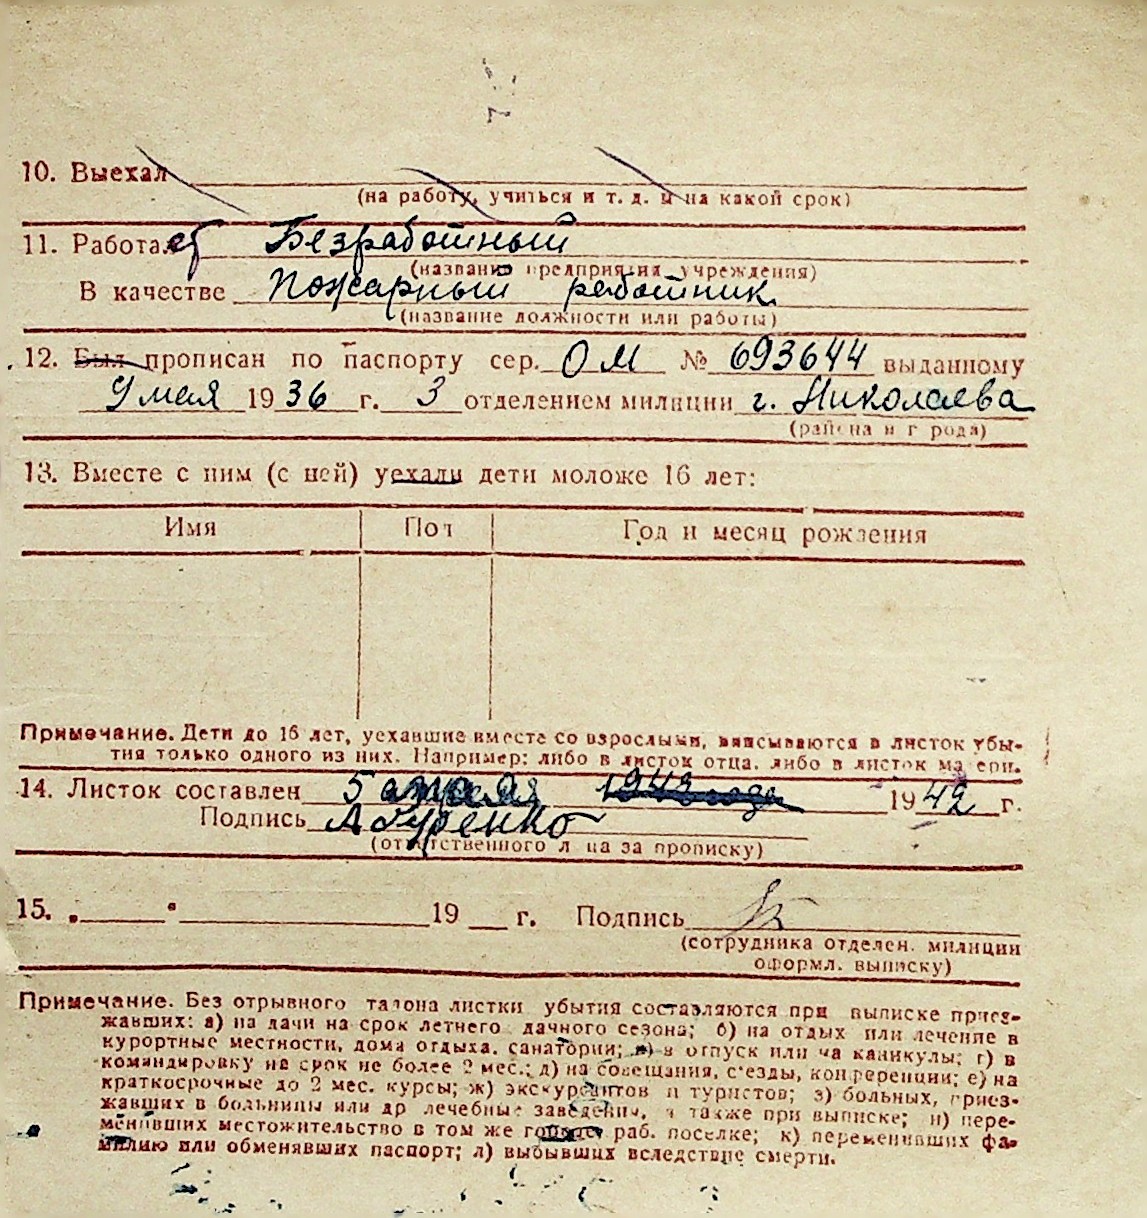 10. Выехал
(на работу, учиться и т. д. и на какой срок)
11. Работает Безработный
(название предприятия учреждения)
В качестве Пожарный работник
(название должности или работы)
12. Был прописан по паспорту сер. ОМ № 693644 выданному
9 мая 1936 г. 3 отделением милиции г. Николаева
(района и города)
13. Вместе с ним (с ней) уехали дети моложе 16 лет:
Имя Пол Год и месяц рождения
Примечание. Дети до 16 лет, уехавшие вместе со взрослыми, вписываются в листок убы-
тия только одного из них. Например: либо в листок отца, либо в листок матери.
14. Листок составлен 5 апреля 1942 года 1942 г.
Подпись
(ответственного лица за прописку)
15. „ “ 19 г. Подпись
(сотрудника отделен. милиции
оформл. выписку)
Примечание. Без отрывного талона листки убытия составляются при выписке приез-
жавших: а) на дачи на срок летнего дачного сезона; б) на отдых или лечение в
курортные местности, дома отдыха, санатории; в) в отпуск или на каникулы; г) в
командировку на срок не более 2 мес.; д) на совещания, съезды, конференции; е) на
краткосрочные до 2 мес. курсы; ж) экскурсантов и туристов; з) больных, приез-
жавших в больницы или др лечебные заведения, а также при выписке; и) пере-
менивших местожительство в том же городе раб. поселке; к) переменивших фа-
милию или обменявших паспорт; л) выбывших вследствие смерти.